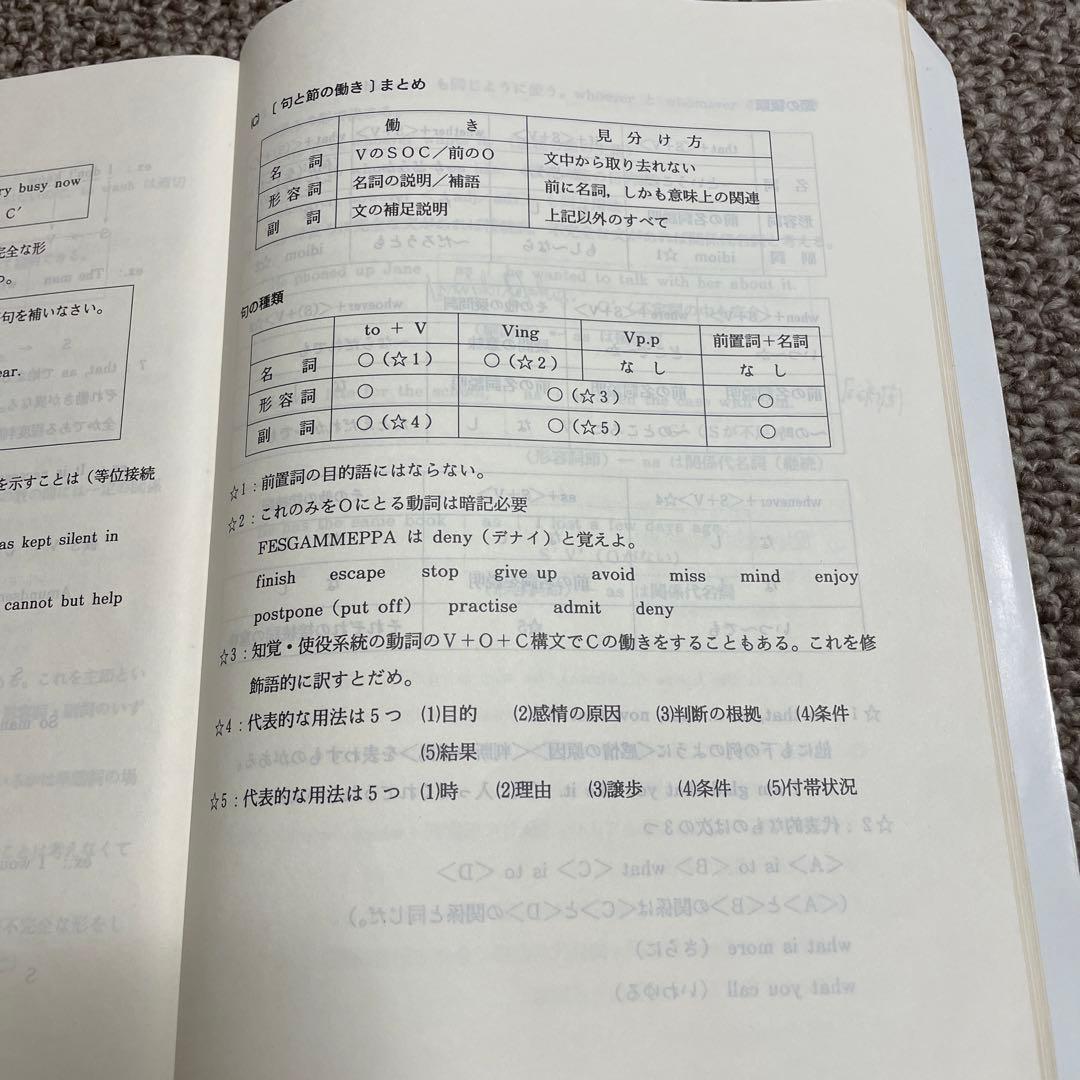 ry busy now
C′
完全な形
句を補いなさい。
ear.
を示すことは（等位接続
as kept silent in
cannot but help
〔句と節の働き〕まとめ
働き 見分け方
名詞 VのSOC／前のO 文中から取り去れない
形容詞 名詞の説明／補語 前に名詞，しかも意味上の関連
副詞 文の補足説明 上記以外のすべて
句の種類
to + V Ving Vp.p 前置詞＋名詞
名詞 ○（☆1） ○（☆2） なし なし
形容詞 ○ ○（☆3） ○
副詞 ○（☆4） ○（☆5） ○
☆1：前置詞の目的語にはならない。
☆2：これのみをOにとる動詞は暗記必要
FESGAMMEPPA は deny（デナイ）と覚えよ。
finish escape stop give up avoid miss mind enjoy
postpone（put off） practise admit deny
☆3：知覚・使役系統の動詞のV＋O＋C構文でCの働きをすることもある。これを修
飾語的に訳すとだめ。
☆4：代表的な用法は5つ (1)目的 (2)感情の原因 (3)判断の根拠 (4)条件
(5)結果
☆5：代表的な用法は5つ (1)時 (2)理由 (3)譲歩 (4)条件 (5)付帯状況